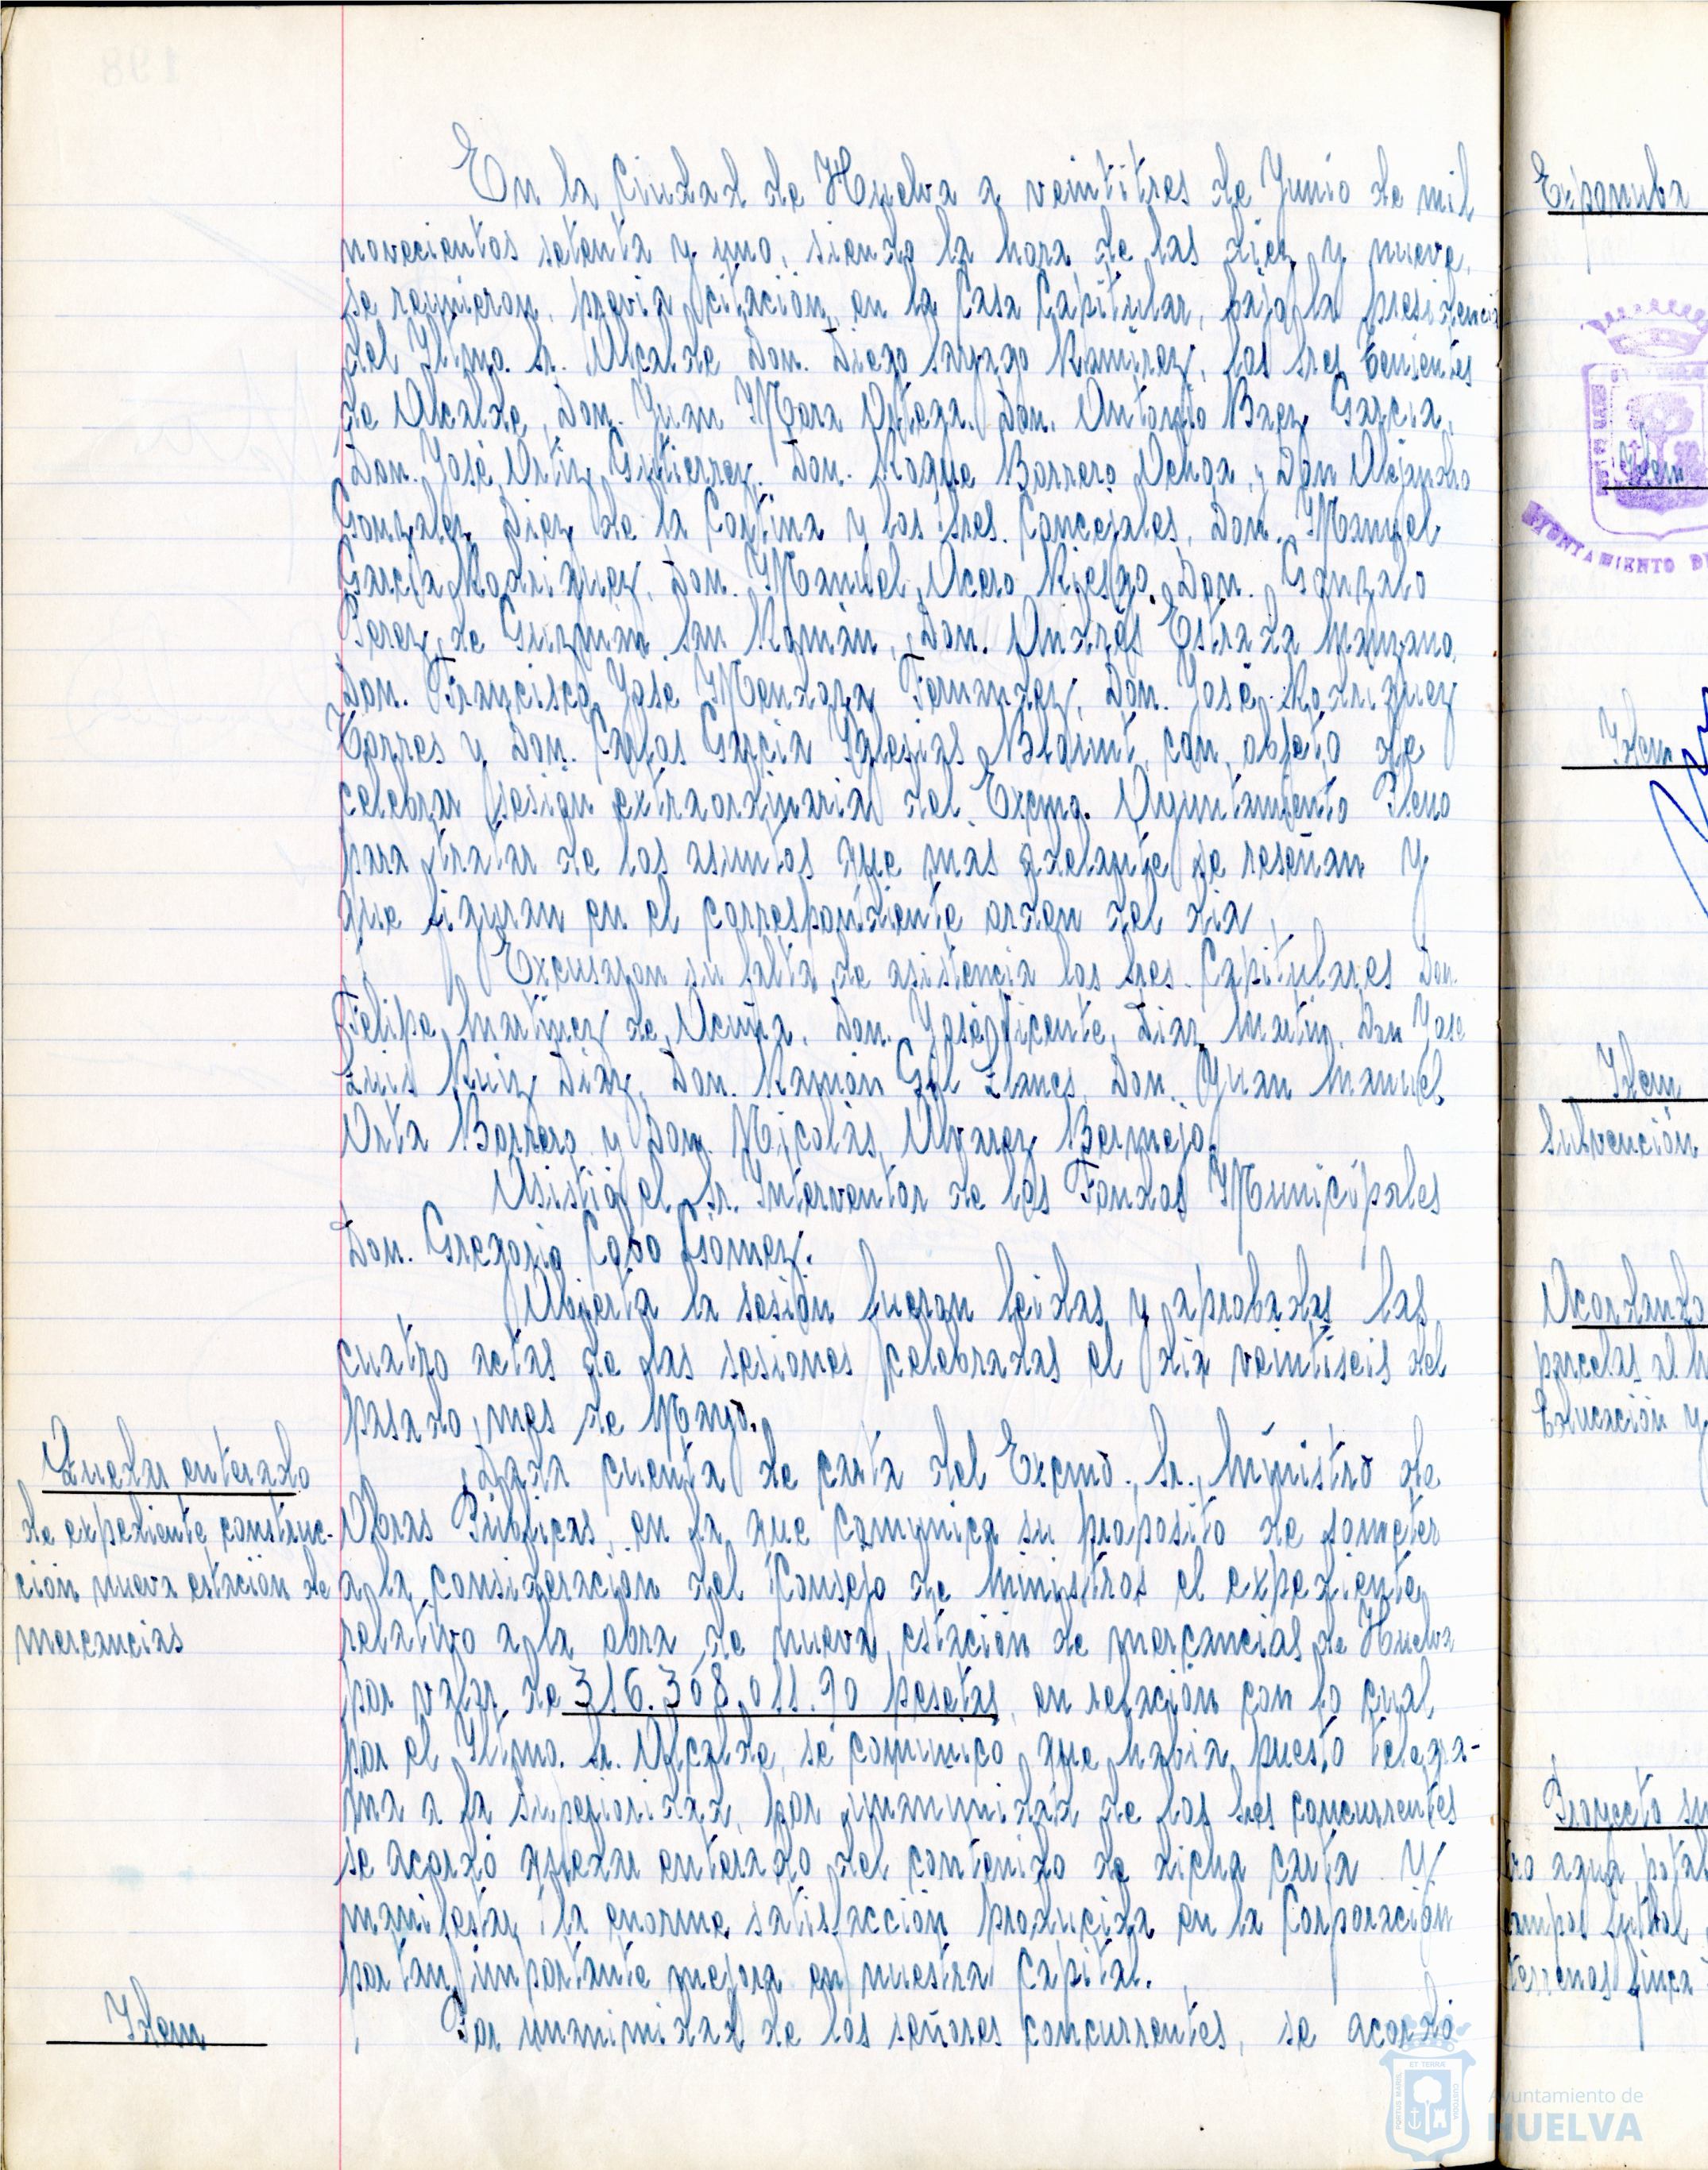 En la Ciudad de Huelva a veintitres de Junio de mil
novecientos setenta y uno, siendo la hora de las diez y nueve,
se reunieron, previa citación, en la Casa Capitular, bajo la presidencia
del Iltmo. Sr. Alcalde Don. Diego Sayago Ramirez, los Sres Tenientes
de Alcalde, Don. Juan Mora Ortega. Don. Antonio Baez Garcia,
Don. José Ortiz Gutierrez. Don. Roque Barrero Ochoa, y Don Alejandro
Gonzalez Diez de la Cortina y los Sres. Concejales, Don. Manuel
Garcia Rodriguez, Don. Manuel Acero Riesgo. Don. Gonzalo
Perez de Guzmán San Román, Don. Andrés Estrada Manzano.
Don. Francisco Jose Mendoza Fernandez, Don. José Rodriguez
Torres y Don. Carlos Garcia Iglesias, con objeto de
celebrar sesion extraordinaria del Excmo. Ayuntamiento Pleno
para tratar de los asuntos que mas adelante se reseñan y
que figuran en el correspondiente orden del dia,
Excusaron su falta de asistencia los Sres. Capitulares Don.
Felipe Martinez de Acuña. Don. José Vicente, Diaz Martin, Don Jose
Luis Ruiz Diaz, Don. Ramón Gil Llanes, Don. Juan Manuel
Orta Borrero y Don. Nicolás Alvarez Bermejo.
Asistió el Sr. Interventor de los Fondos Municipales
Don. Gregorio Gomez.
Abierta la sesión fueron leidas y aprobadas las
cuatro actas de las sesiones celebradas el dia veintiseis del
pasado, mes de Mayo.
Quedar enterado
de expediente construc-
ción nueva estación de
mercancias
Dada cuenta de carta del Excmo. Sr. Ministro de
Obras Públicas, en la que comunica su proposito de someter
a la consideración del Consejo de Ministros el expediente
relativo a la obra de nueva estación de mercancias de Huelva
por valor de 316.308.011.90 pesetas, en relación con lo cual
por el Iltmo. Sr. Alcalde, se comunicó que habia puesto telegra-
ma a la superioridad, por unanimidad de los Sres concurrentes
se acordó quedar enterado del contenido de dicha carta y
manifestar, la enorme satisfacción producida en la Corporación
por tan importante mejora en nuestra Capital.
Idem
Por unanimidad de los señores concurrentes, se acordó
Idem
Idem
Idem
Subvención
Acordando
parcelas al
Educación y
Proyecto
agua
terrenos finca
AYUNTAMIENTO
Ayuntamiento de
HUELVA